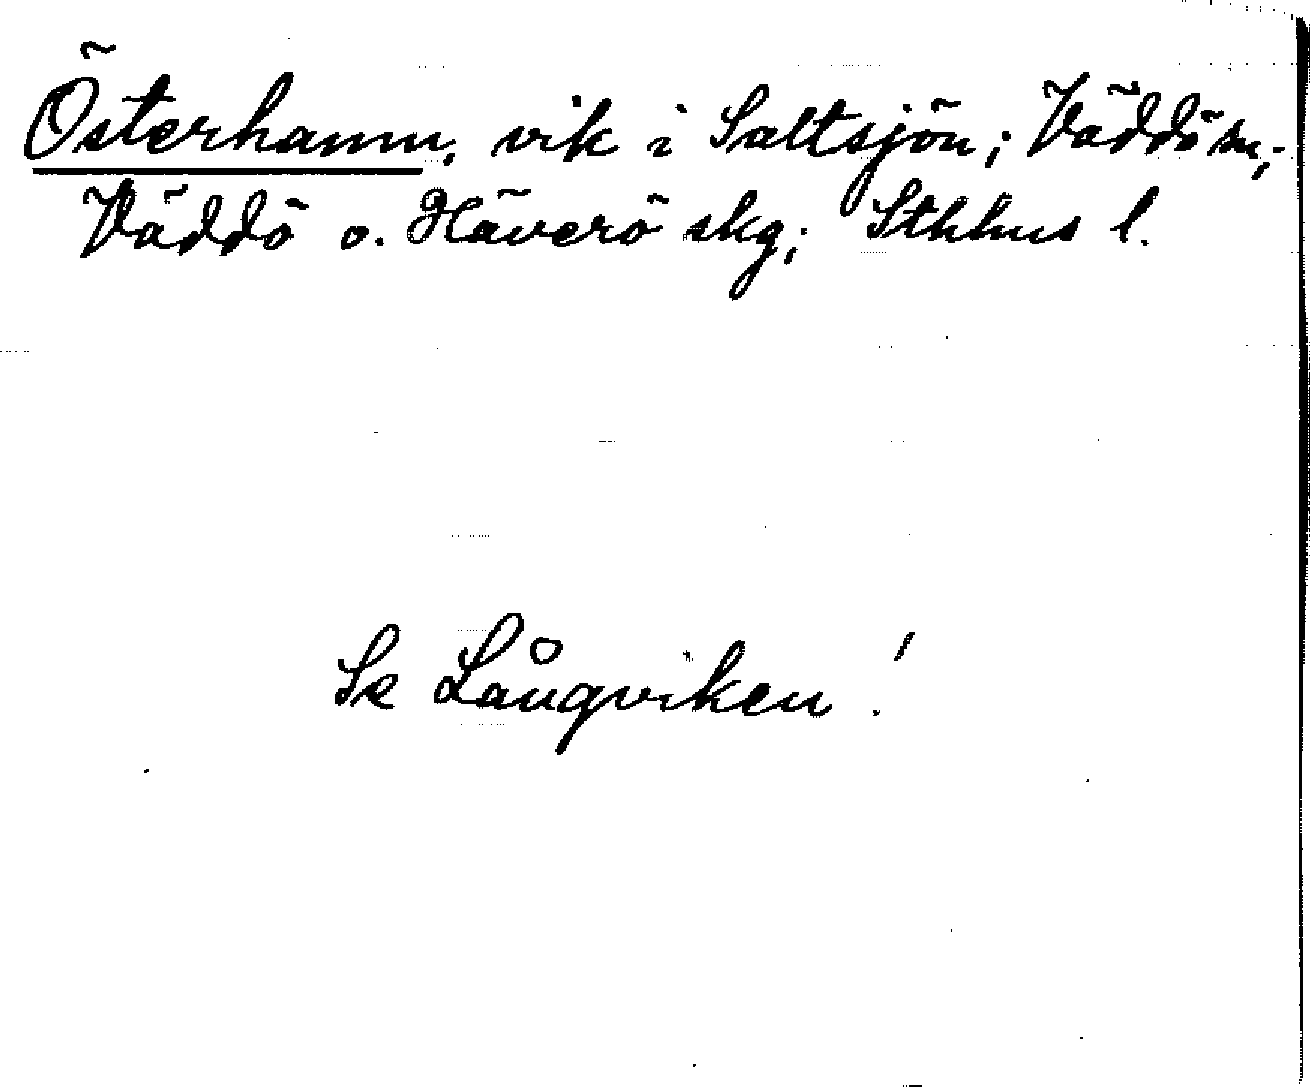 Österhamn, vik i Saltsjön; Väddö sn;
Väddö o. Häverö skg; Sthlms l.
Se Långviken!